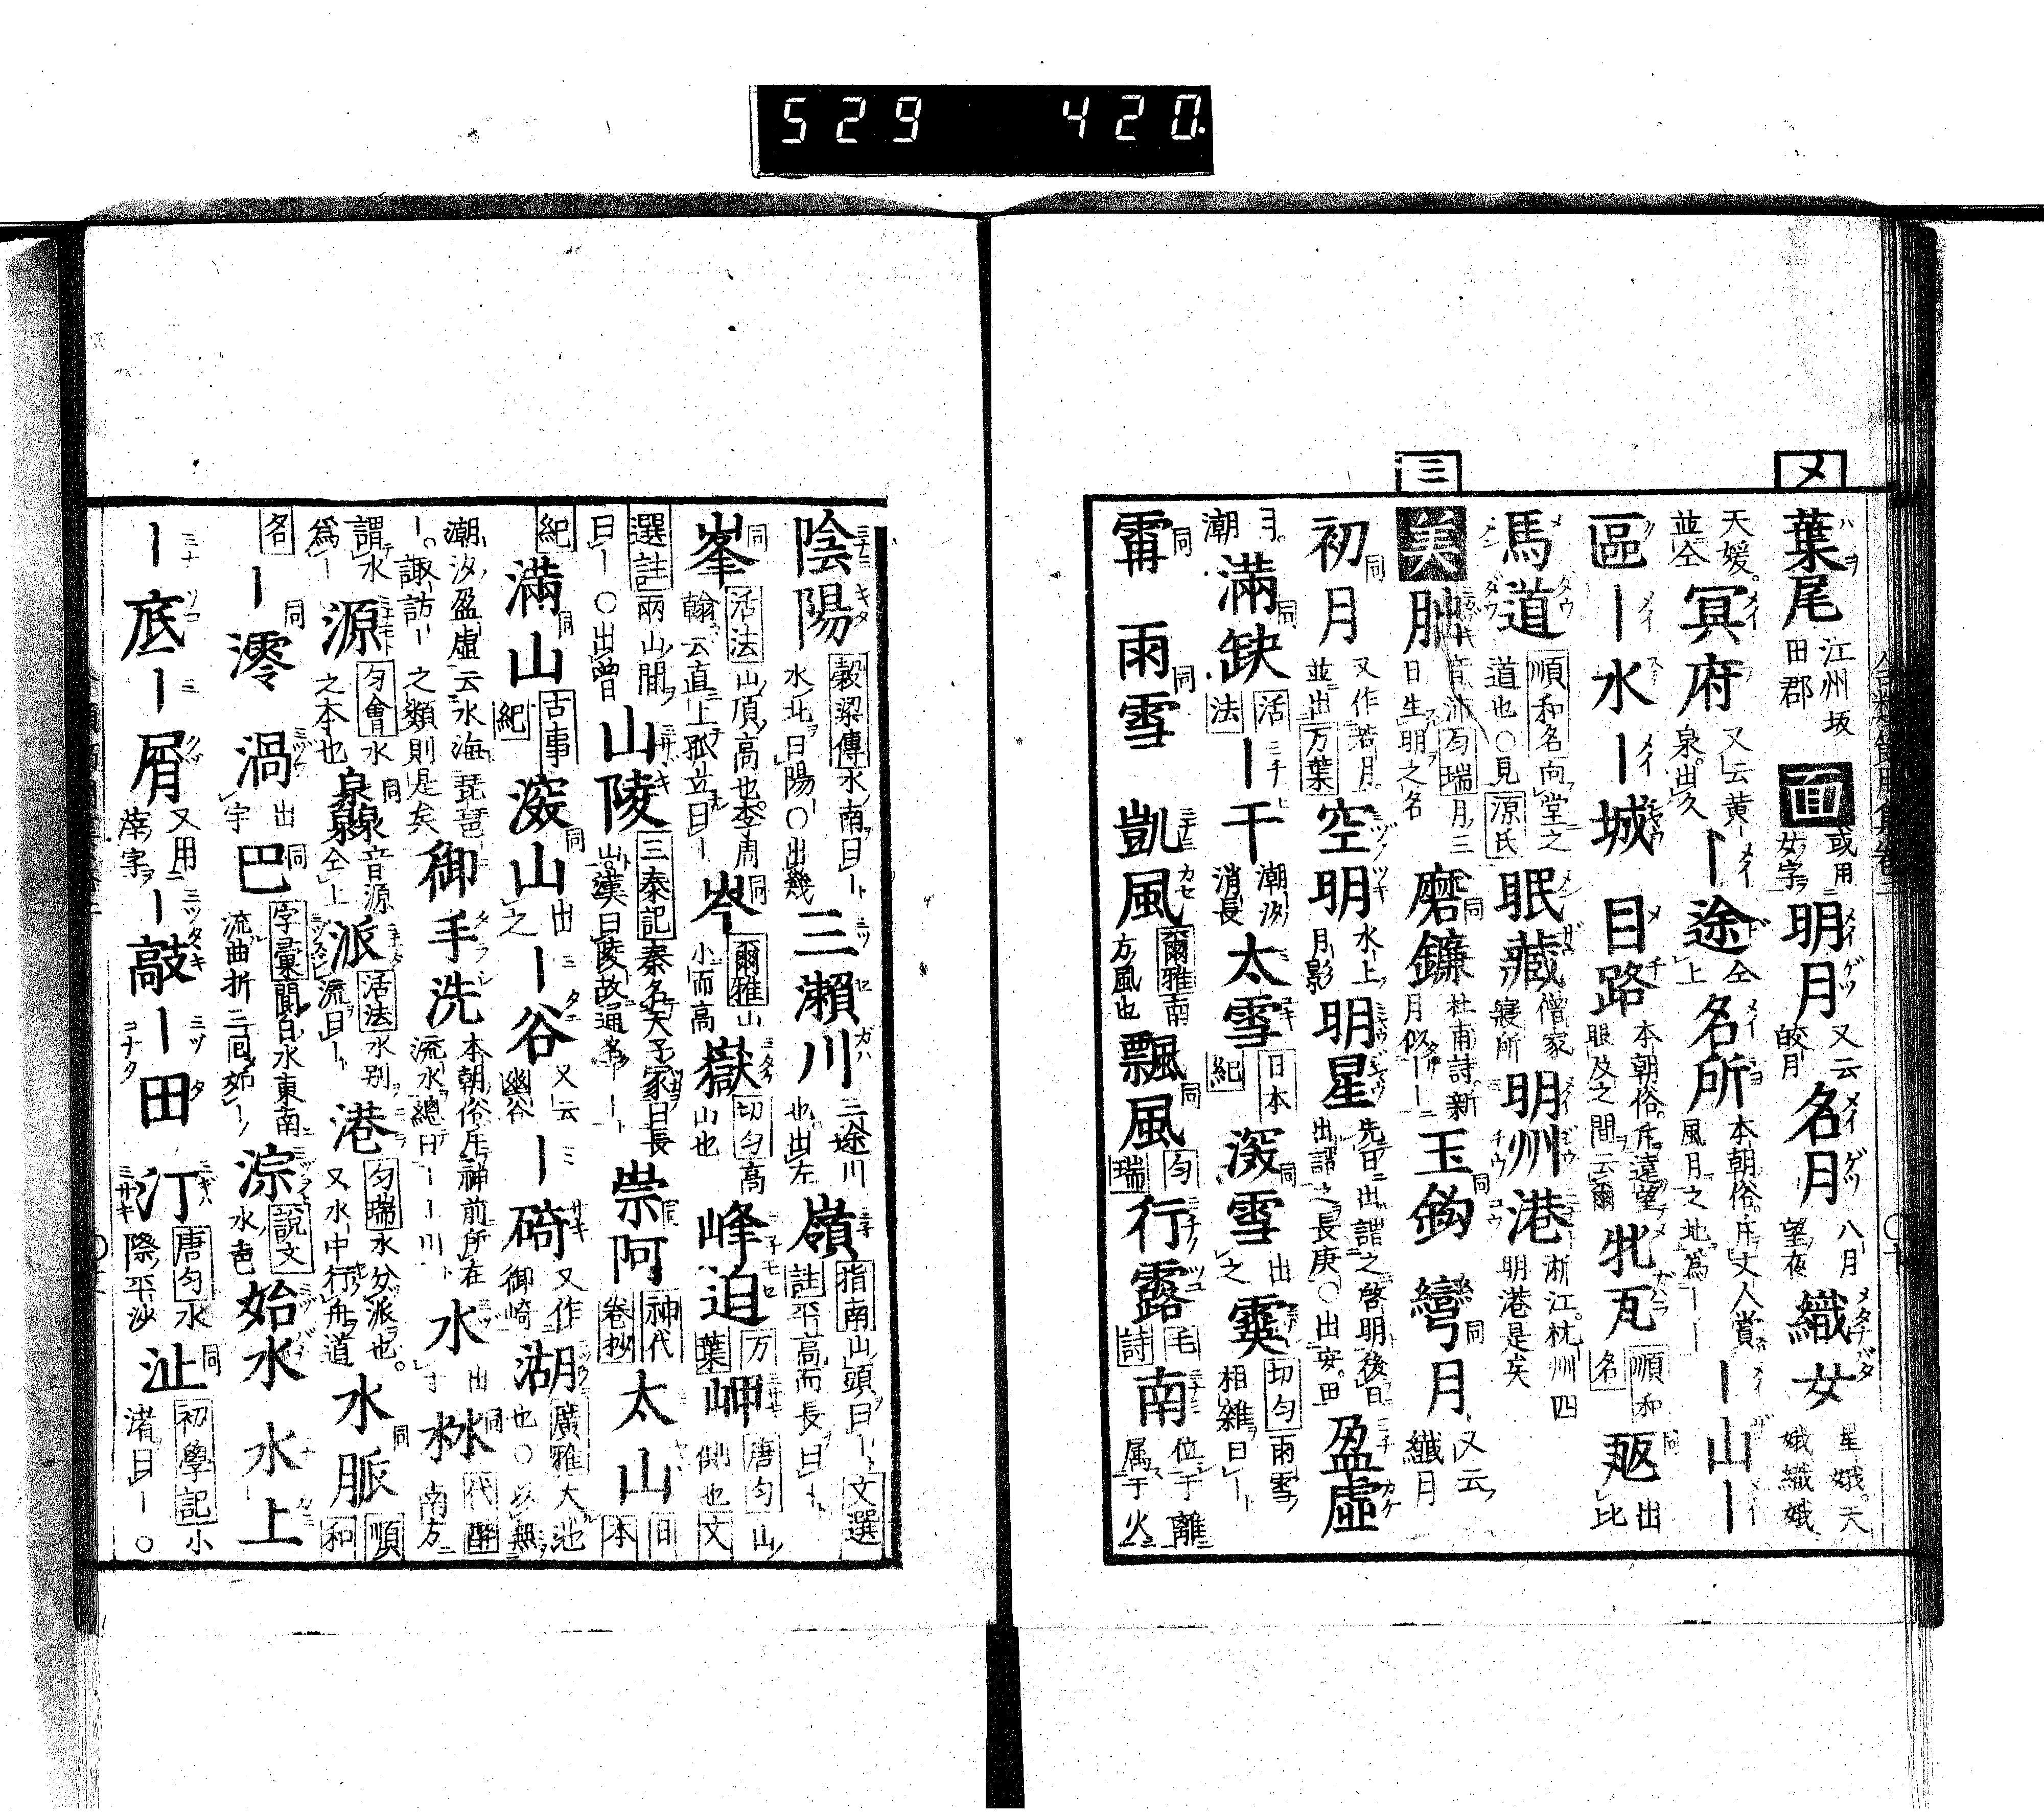 529 420
メ
葉尾 江州坂田郡 面 或用女字 明月 又云皎月 名月 八月望夜 織女 星娥。天娥織娥
天媛。並仝 冥府 又云黄泉。出久 ー途 仝上 名所 本朝俗。斥文人賞風月之地為ーー ー山ー
區ー水ー城 目路 本朝俗。斥遠望眼及之間云爾 牝瓦 順和名 㼝 出比
馬道 順和名向堂之道也○見源氏 眠藏 僧家寢所 明州港 浙江。杭州四明港是矣
三
美 朏 音沛匀瑞月三日生明之名 磨鎌 杜甫詩。新月似ーー 玉鈎 同 彎月 同 又云纖月
初月 同 又作若月。並出万葉 空明 水上月影 明星 先日出謂之啓明後日出謂之長庚○出安。田 盈虚
ヨ。潮 滿缺 同 活法 ー干 潮汐消長 太雪 日本紀 深雪 同 出之 霙 切匀雨雪相雜曰ー
霄 同 雨雪 同 凱風 爾雅南方風也 飄風 同 匀瑞 行露 毛詩 南 位于離属于火
陰陽 穀梁傳水南曰ー水北曰陽ー○出幾 三瀬川 三途川也出左 嶺 指南山頭曰ー文選註平高而長曰ー
峯 同 活法山頂高也李周翰云直上孤立曰ー 岑 同 爾雅山小而高 嶽 切匀高山也 峰迫 万葉 岬 唐匀山側也文
選註兩山間曰ー○出曾 山陵 三秦記秦名天子冢曰長山漢曰陵故通名ーー 崇阿 神代卷抄 太山 日本
紀 滿山 同 古事紀 深山 同 出之 ー谷 又云幽谷 ー碕 又作御崎 湖 廣雅大池也○以無
潮汐盈虚云水海琵琶ー。諏訪ー之類則是矣 御手洗 本朝俗斥神前所在流水總曰ーー川 水 出 沝 同 代醉南方
謂水爲ー 源 匀會水之本也 灥 同 音源仝上 派 活法水別流曰ー 港 匀瑞水分派也。又水中行舟道 水脈 同 順和
名 ー澪 同 渦 出宇 巴 同 字彙閬白水東南流曲折三囘如ー 淙 説文水 始水 水上
ー底ー屑 又用字 ー敲ー田 汀 唐匀水際平沙 沚 同 初學記小渚曰ー○